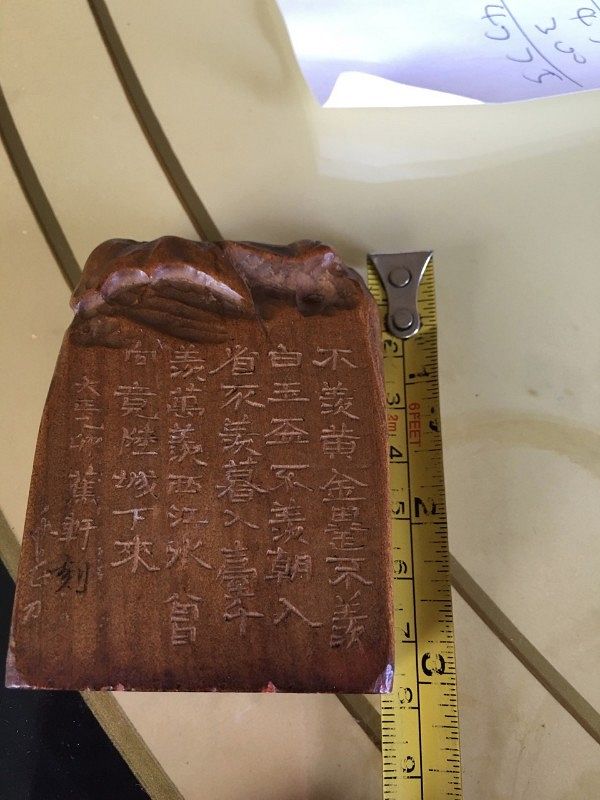 不羨黄金罍不羨
白玉盃不羨朝入
省不羨暮入臺千
羨萬羨西江水曾
向竟陵城下來
軒刻
刀
3
6FEET
2m
4
5
2
6
7
3
8
9